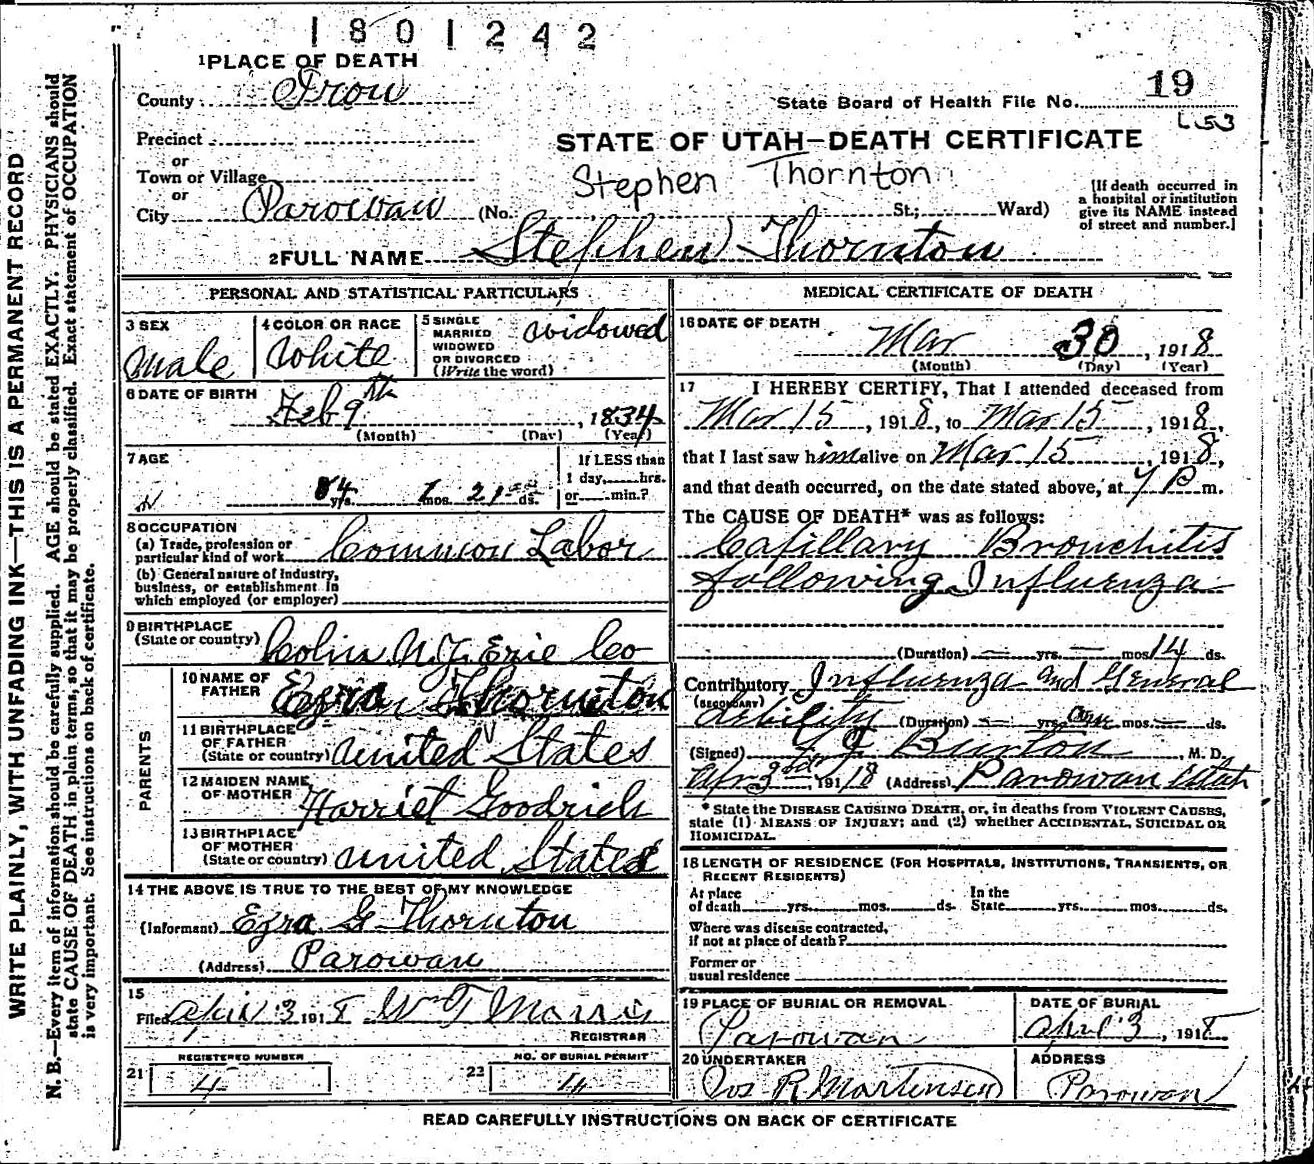 1801242
1 PLACE OF DEATH
County Iron
19
State Board of Health File No.
L 53
Precinct
or
Town or Village
or
City Parowan (No. St.; Ward)
STATE OF UTAH—DEATH CERTIFICATE
Stephen Thornton
[If death occurred in
a hospital or institution
give its NAME instead
of street and number.]
2 FULL NAME Stephen Thornton
PERSONAL AND STATISTICAL PARTICULARS
3 SEX
Male
4 COLOR OR RACE
White
5 SINGLE
MARRIED
WIDOWED
OR DIVORCED
(Write the word)
widowed
6 DATE OF BIRTH
Feb 9th, 1834
(Month) (Day) (Year)
7 AGE
84 yrs. 1 mos. 21 ds.
If LESS than
1 day, hrs.
or min.?
8 OCCUPATION
(a) Trade, profession or
particular kind of work Common Labor
(b) General nature of industry,
business, or establishment in
which employed (or employer)
9 BIRTHPLACE
(State or country) Colins N.Y. Erie Co
PARENTS
10 NAME OF
FATHER Ezra Thornton
11 BIRTHPLACE
OF FATHER
(State or country) United States
12 MAIDEN NAME
OF MOTHER Harriet Goodrich
13 BIRTHPLACE
OF MOTHER
(State or country) United States
14 THE ABOVE IS TRUE TO THE BEST OF MY KNOWLEDGE
(Informant) Ezra G Thornton
(Address) Parowan
15
Filed April 3 1918 Wm T Morris
REGISTRAR
REGISTERED NUMBER
21 4
NO. OF BURIAL PERMIT
23 4
MEDICAL CERTIFICATE OF DEATH
16 DATE OF DEATH
Mar 30, 1918
(Month) (Day) (Year)
17 I HEREBY CERTIFY, That I attended deceased from
Mar 15, 1918, to Mar 15, 1918,
that I last saw him alive on Mar 15, 1918,
and that death occurred, on the date stated above, at P m.
The CAUSE OF DEATH* was as follows:
Capillary Bronchitis
following Influenza
(Duration) — yrs. — mos. 14 ds.
Contributory Influenza and General
(SECONDARY)
debility (Duration) — yrs. one mos. — ds.
(Signed) Burton M. D.
Apr 3, 1918 (Address) Parowan Utah
* State the DISEASE CAUSING DEATH, or, in deaths from VIOLENT CAUSES,
state (1) MEANS OF INJURY; and (2) whether ACCIDENTAL, SUICIDAL OR
HOMICIDAL.
18 LENGTH OF RESIDENCE (FOR HOSPITALS, INSTITUTIONS, TRANSIENTS, OR
RECENT RESIDENTS)
At place
of death yrs. mos. ds.
In the
State yrs. mos. ds.
Where was disease contracted,
if not at place of death?
Former or
usual residence
19 PLACE OF BURIAL OR REMOVAL
Parowan
DATE OF BURIAL
April 3, 1918
20 UNDERTAKER
Jos R Martensen
ADDRESS
Parowan
READ CAREFULLY INSTRUCTIONS ON BACK OF CERTIFICATE
WRITE PLAINLY, WITH UNFADING INK—THIS IS A PERMANENT RECORD
N. B.—Every item of information should be carefully supplied. AGE should be stated EXACTLY. PHYSICIANS should
state CAUSE OF DEATH in plain terms, so that it may be properly classified. Exact statement of OCCUPATION
is very important. See instructions on back of certificate.